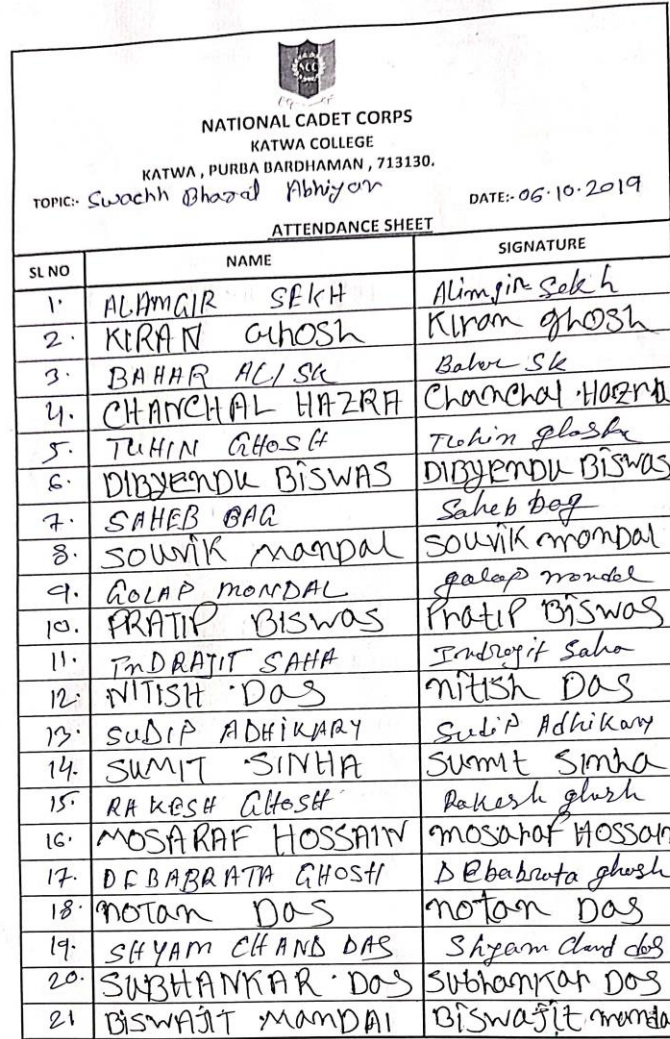 NCC
NATIONAL CADET CORPS
KATWA COLLEGE
KATWA , PURBA BARDHAMAN , 713130.
TOPIC:- Swachh Bharat Abhiyan DATE:- 06.10.2019
ATTENDANCE SHEET
SL NO NAME SIGNATURE
1. ALAMGIR SEKH Alimgir Sekh
2. KIRAN GhOSh Kiran ghosh
3. BAHAR ALI SK Bahar SK
4. CHANCHAL HAZRA Chanchal Hazra
5. TUHIN GHOSH Tuhin ghosh
6. DIBYENDU BISWAS DIBYENDU BISWAS
7. SAHEB BAG Saheb bag
8. SOUVIK MANDAL SOUVIK MONDAL
9. GOLAP MONDAL golap mondal
10. PRATIP BISWAS PratiP BISWAS
11. INDRAJIT SAHA Indrojit Saha
12. NITISH DAS nitish DAS
13. SUDIP ADHIKARY SudiP Adhikary
14. SUMIT SINHA Sumit Sinha
15. RAKESH GHOSH Rakesh ghosh
16. MOSARAF HOSSAIN mosaraf HOSSain
17. DEBABRATA GHOSH DEbabrata ghosh
18. NOTAN DAS notan DAS
19. SHYAM CHAND DAS Shyam chand das
20. SUBHANKAR DAS Subhankar DAS
21 BISWAJIT MANDAl Biswajit manda